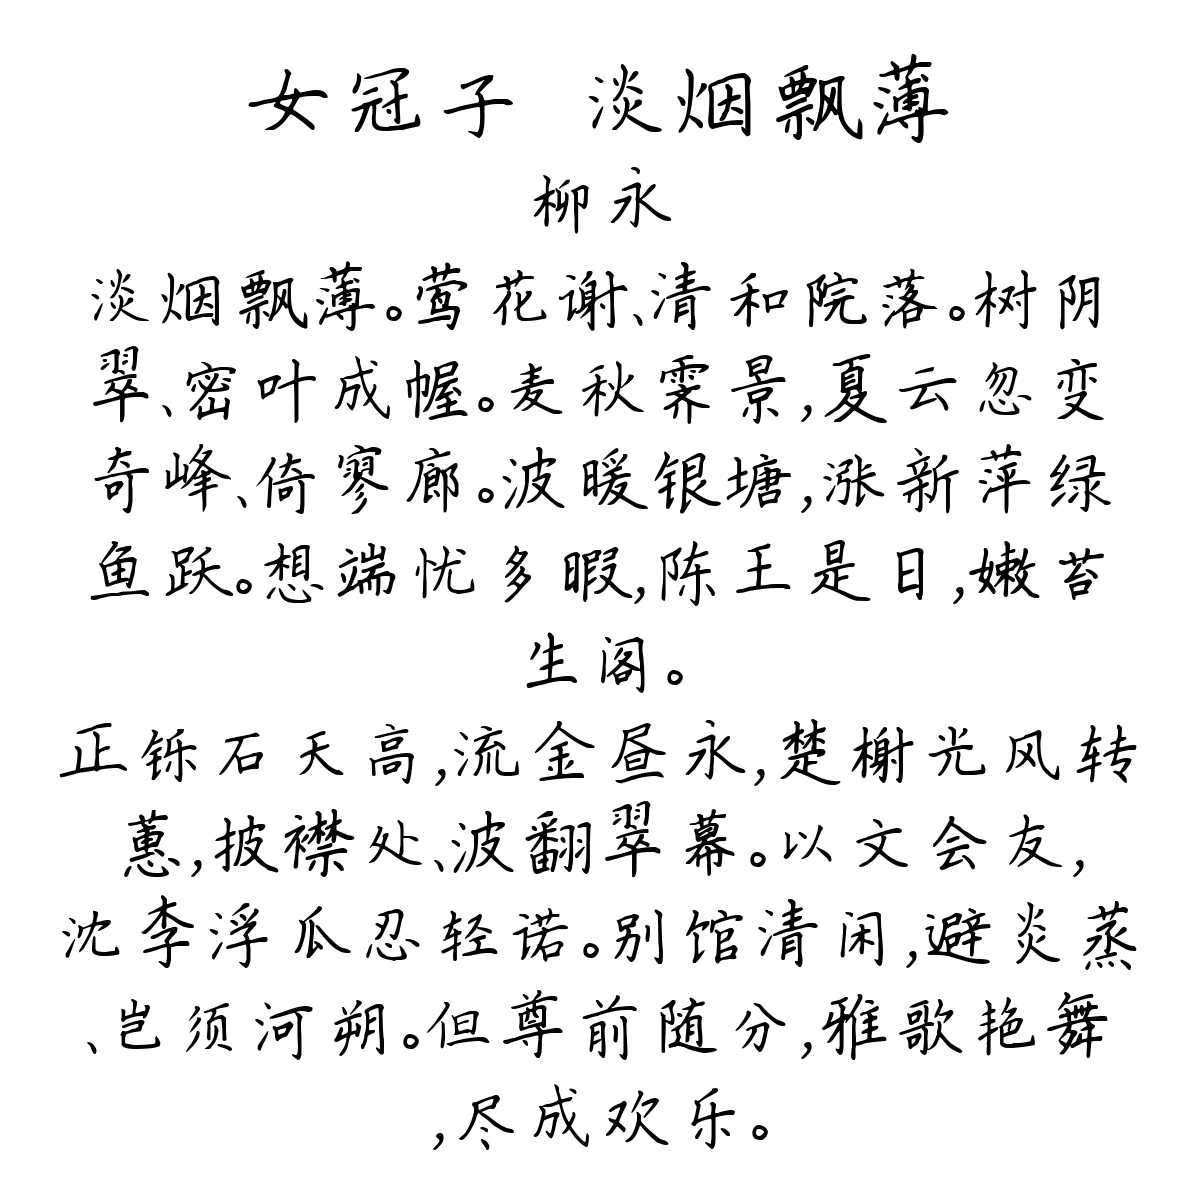 女冠子 淡烟飘薄
柳永
淡烟飘薄。莺花谢、清和院落。树阴
翠、密叶成幄。麦秋霁景,夏云忽变
奇峰、倚寥廊。波暖银塘,涨新萍绿
鱼跃。想端忧多暇,陈王是日,嫩苔
生阁。
正铄石天高,流金昼永,楚榭光风转
蕙,披襟处、波翻翠幕。以文会友,
沈李浮瓜忍轻诺。别馆清闲,避炎蒸
、岂须河朔。但尊前随分,雅歌艳舞
,尽成欢乐。